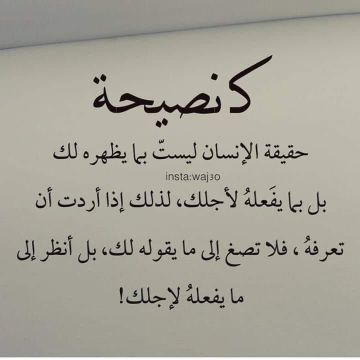 كنصيحة
حقيقة الإنسان ليستّ بما يظهره لك
insta:waj3o
بل بما يَفَعلهُ لأجلك، لذلك إذا أردت أن
تعرفهُ ، فلا تصغ إلى ما يقوله لك، بل أنظر إلى
ما يفعلهُ لإجلك!